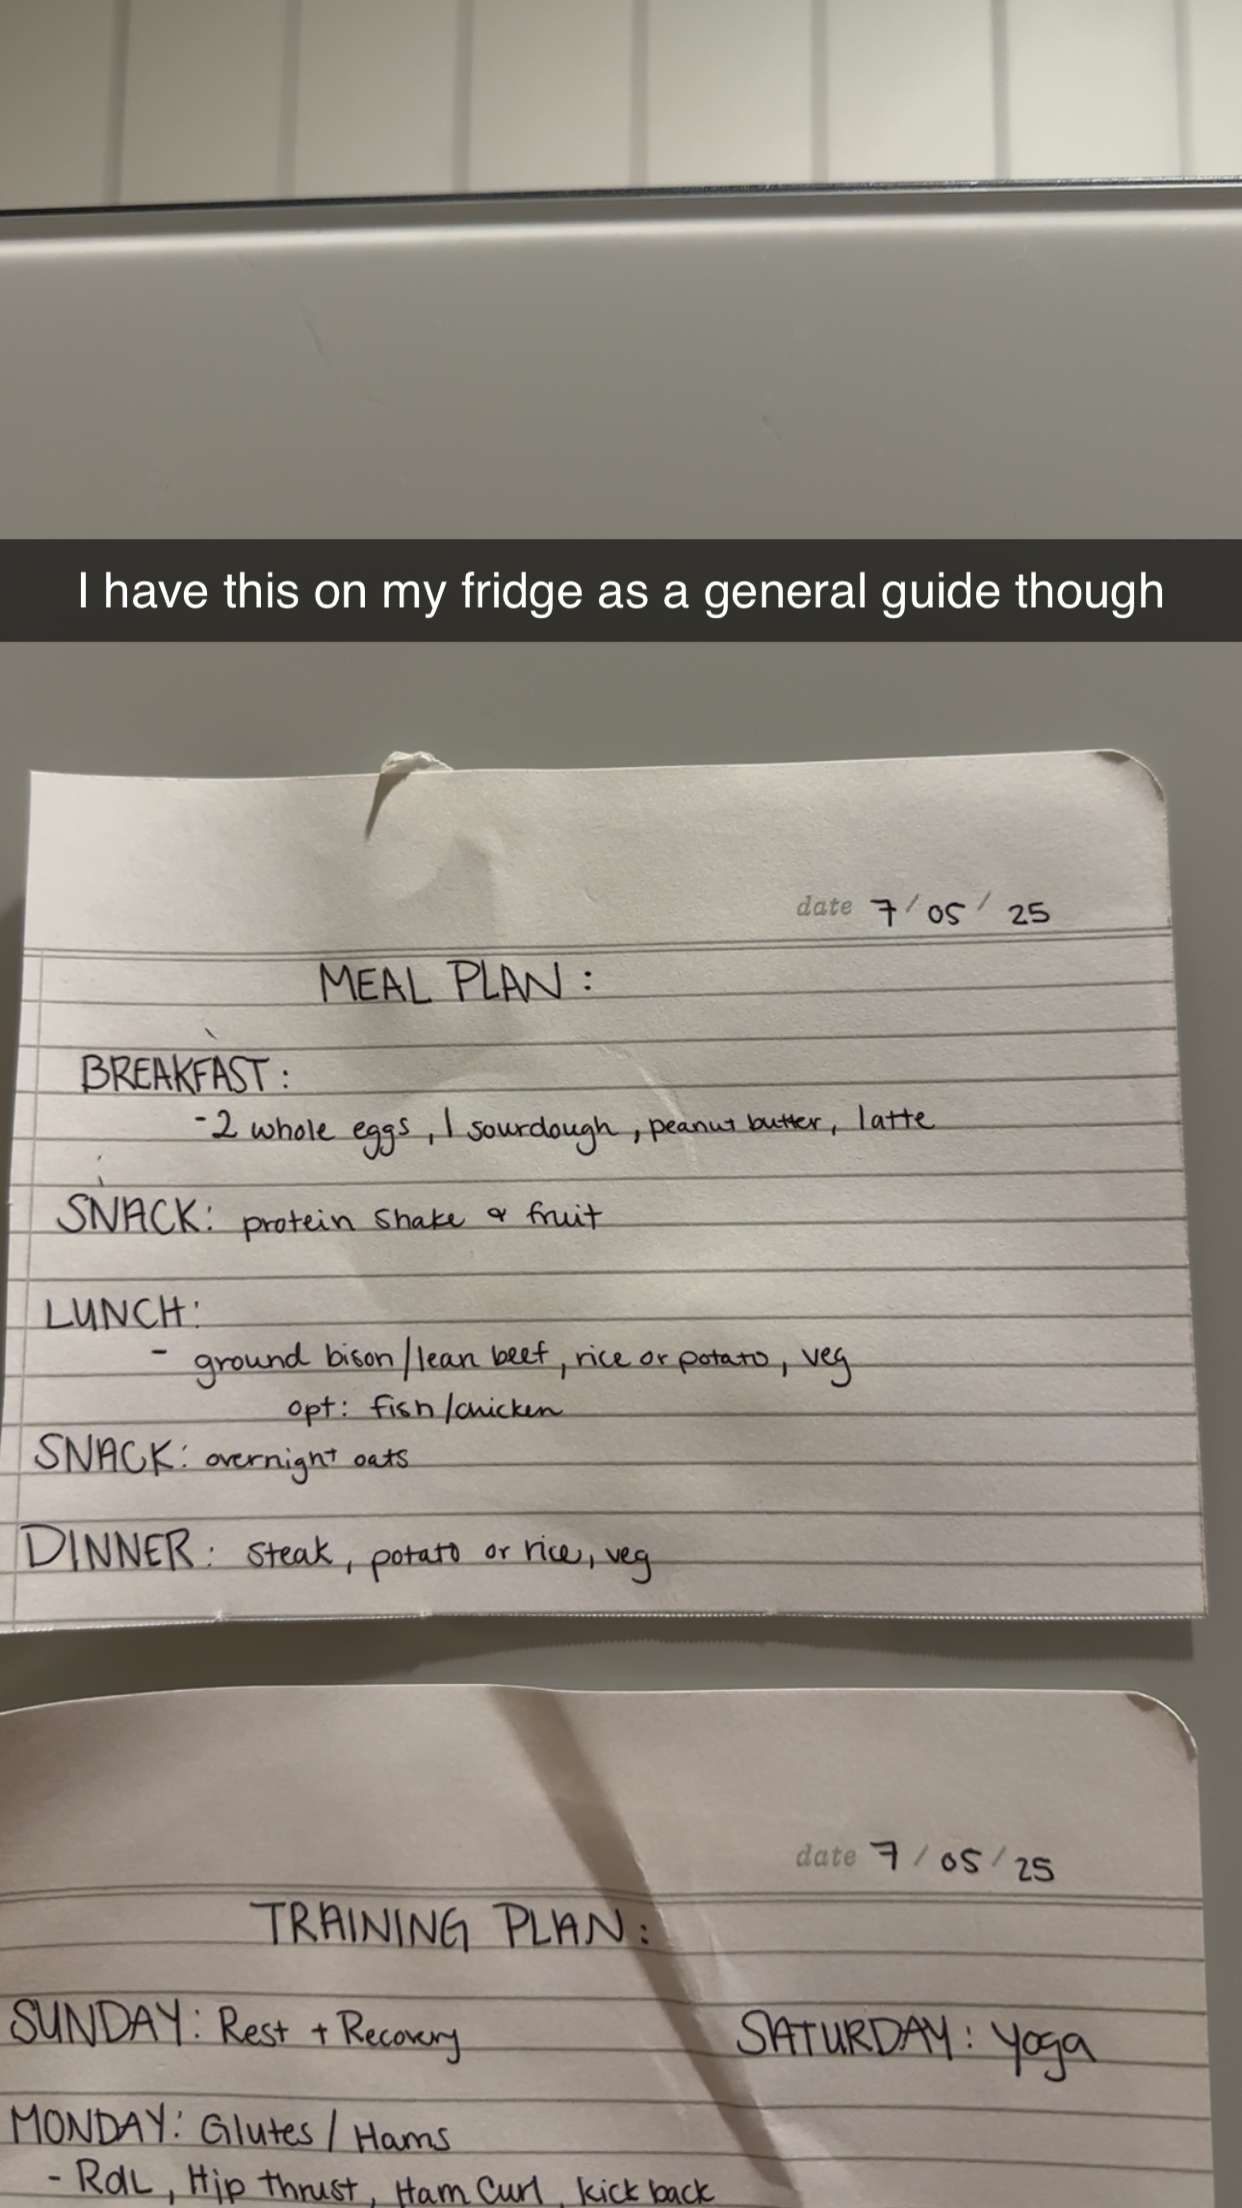 I have this on my fridge as a general guide though
date 7/05/25
MEAL PLAN:
BREAKFAST:
-2 whole eggs, 1 sourdough, peanut butter, latte
SNACK: protein shake & fruit
LUNCH:
- ground bison/lean beef, rice or potato, veg
opt: fish/chicken
SNACK: overnight oats
DINNER: steak, potato or rice, veg
date 7/05/25
TRAINING PLAN:
SUNDAY: Rest + Recovery
SATURDAY: Yoga
MONDAY: Glutes / Hams
- RdL, Hip thrust, Ham Curl, kick back